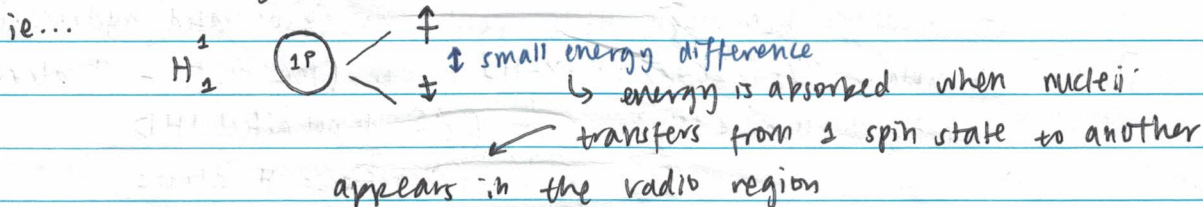 ie...
H 1 1 1P ↕ small energy difference
↳ energy is absorbed when nucleii
transfers from 1 spin state to another
appears in the radio region